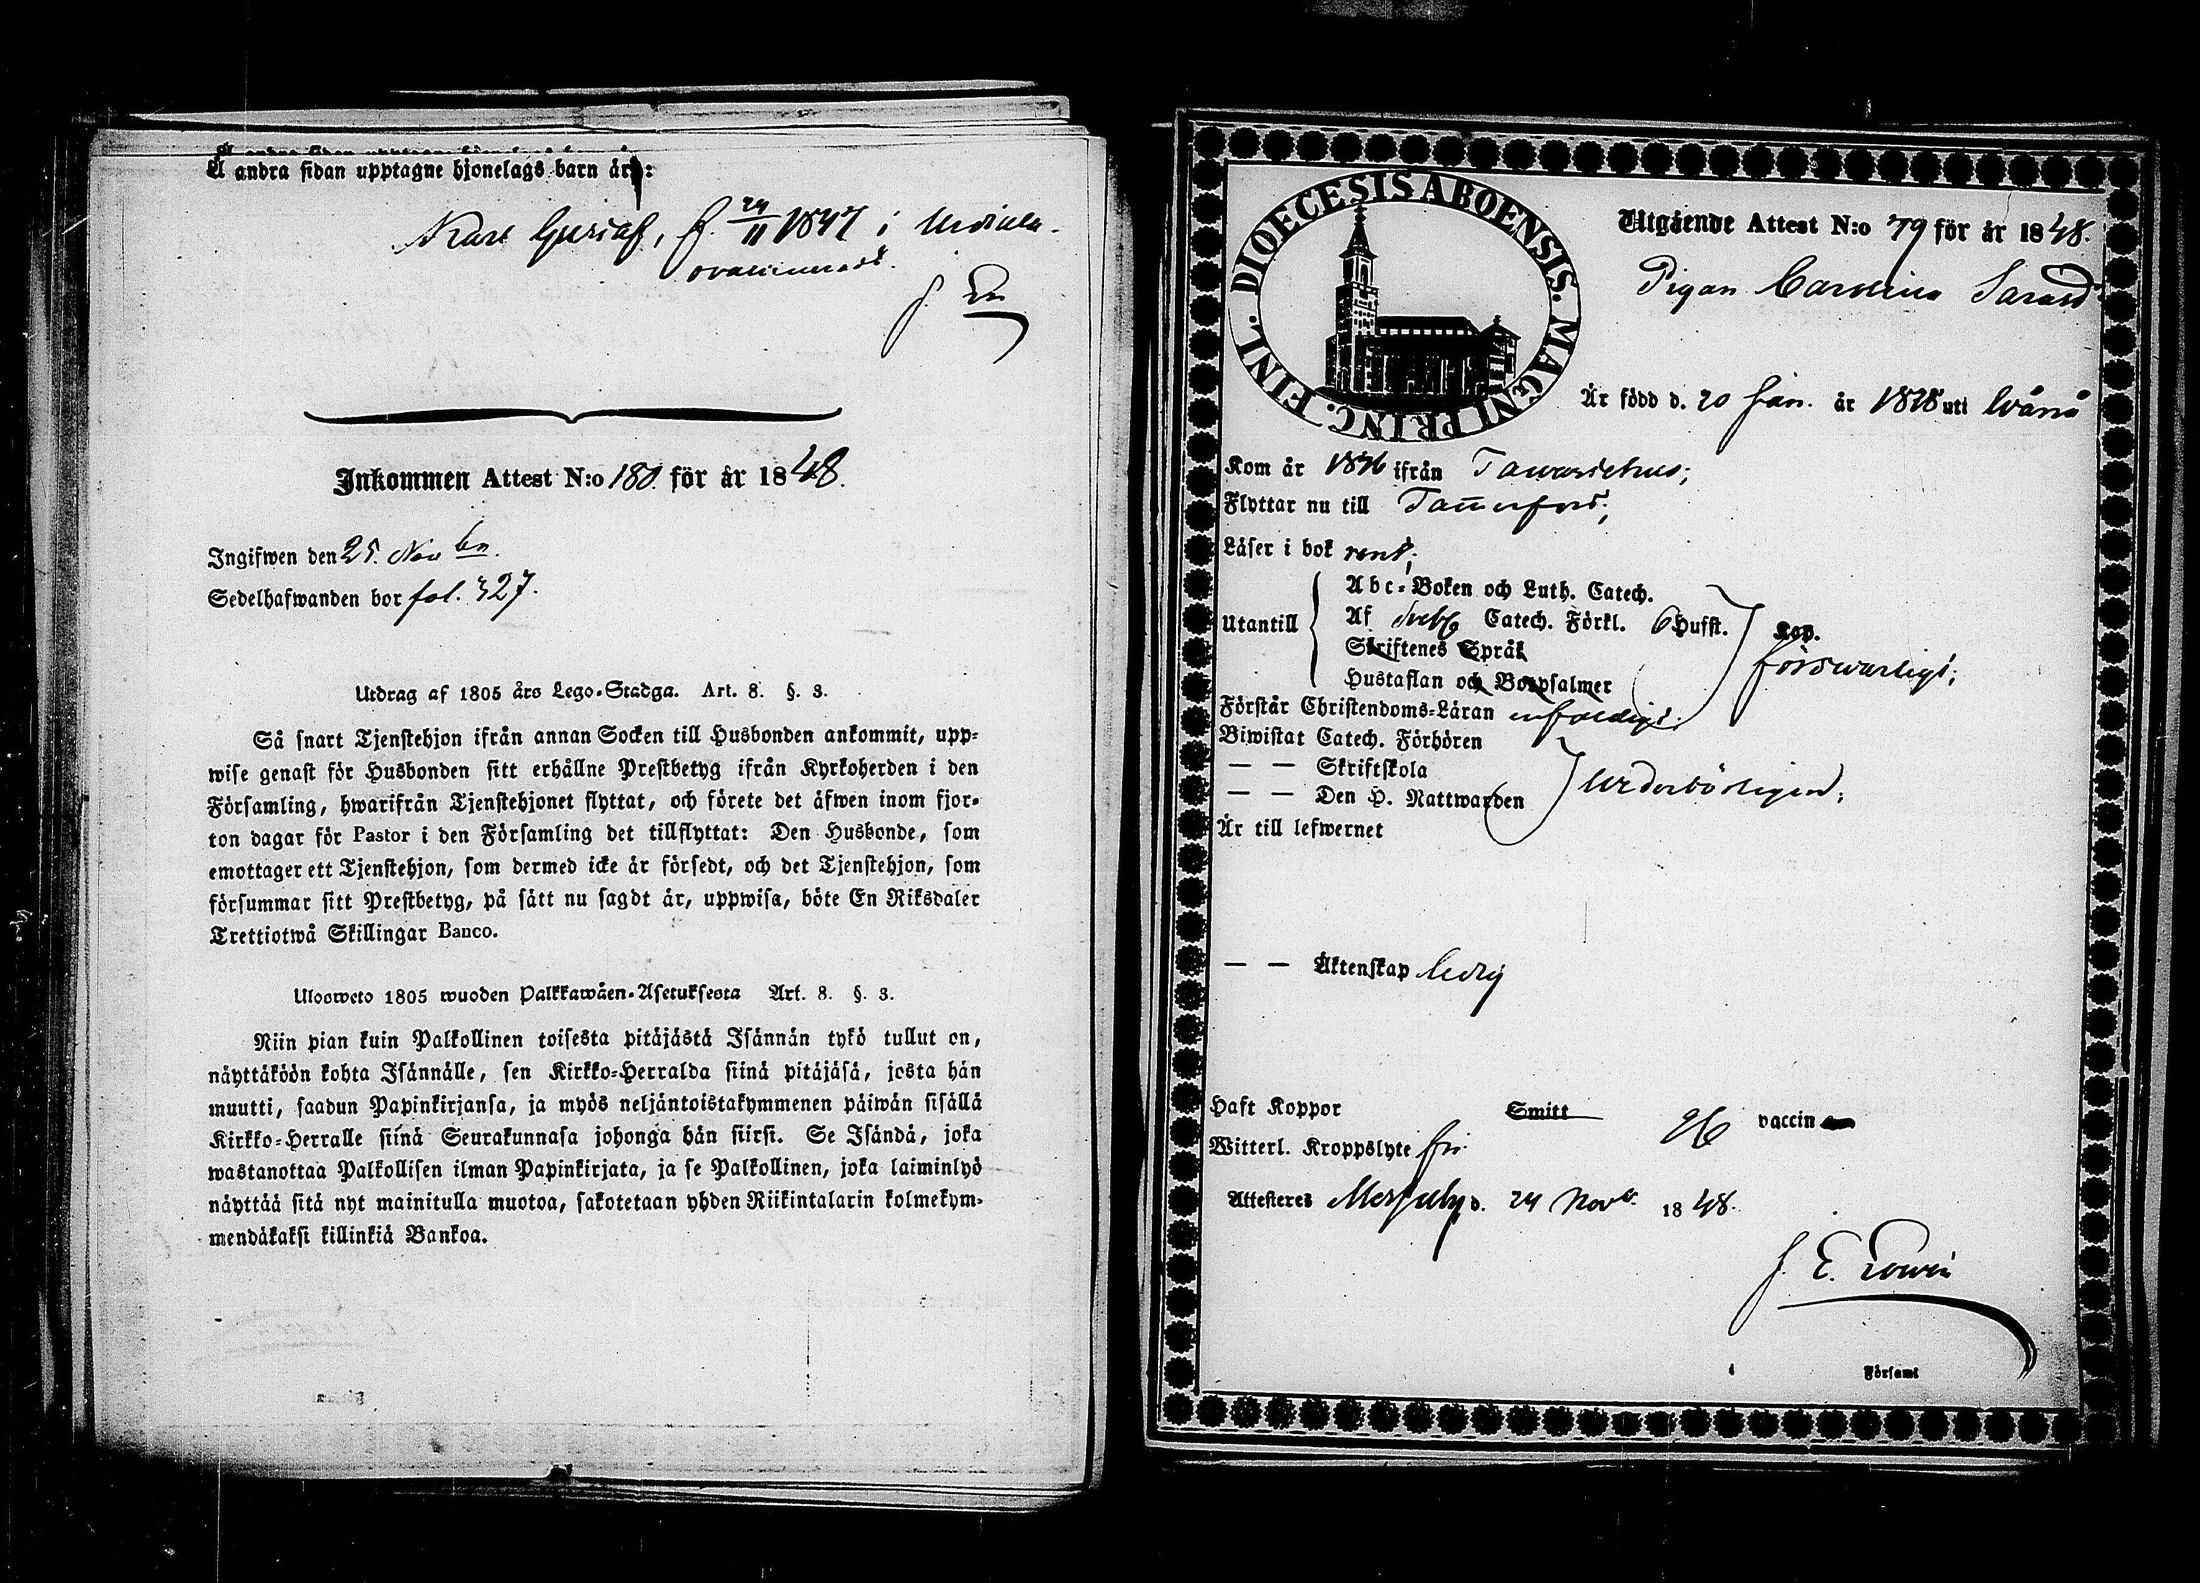 Å andra sidan upptagne hjonelags barn är:
Karl Gustaf, f. 24/11 1847 i Urdiala
ovaccinerad.
Inkommen Attest N:o 180. för år 1848.
Ingifwen den 25. Novbr.
Sedelhafwanden bor fol. 327.
Utdrag af 1805 års Lego-Stadga. Art. 8. §. 3.
Så snart Tjenstehjon ifrån annan Socken till Husbonden ankommit, upp-
wise genast för Husbonden sitt erhållne Prestbetyg ifrån Kyrkoherden i den
Församling, hwarifrån Tjenstehjonet flyttat, och förete det äfwen inom fjor-
ton dagar för Pastor i den Församling det tillflyttat: Den Husbonde, som
emottager ett Tjenstehjon, som dermed icke är försedt, och det Tjenstehjon, som
försummar sitt Prestbetyg, på sätt nu sagdt är, uppwisa, böte En Riksdaler
Trettiotwå Skillingar Banco.
Ulosweto 1805 wuoden Palkkawäen-Asetuksesta Art. 8. §. 3.
Niin pian kuin Palkollinen toisesta pitäjästä Isännän tykö tullut on,
näyttäköön kohta Isännälle, sen Kirkko-Herralda siinä pitäjäsä, josta hän
muutti, saadun Papinkirjansa, ja myös neljäntoistakymmenen päiwän sisällä
Kirkko-Herralle siinä Seurakunnasa johonga hän siirsi. Se Isändä, joka
wastanottaa Palkollisen ilman Papinkirjata, ja se Palkollinen, joka laiminlyö
näyttää sitä nyt mainitulla muotoa, sakotetaan yhden Riikintalarin kolmekym-
mendäkaksi killinkiä Bankoa.
DIOECESIS ABOENSIS. MAGNI PRINC. FINL.
Utgående Attest N:o 79 för år 1848.
Pigan Carolina Sarasd
Är född d. 20 Jan. år 1828 uti Wånå
Kom år 1846 ifrån Tawastehus;
Flyttar nu till Tammerfors;
Läser i bok rent;
Utantill
Abc-Boken och Luth. Catech.
Af Svebg Catech. Förkl. 6 Hufst. Kap.
Skriftenes Språk
försvarligt;
Hustaflan och Botpsalmer
Förstår Christendoms-Läran enfaldigt.
Biwistat Catech. Förhören
— — Skriftskola
— — Den H. Nattwarden
wederbörligen;
Är till lefwernet
— — Äktenskap ledig
Haft Koppor Smitt vaccin
Witterl. Kroppslyte fri.
Attesteres Messuby d. 24 Novbr. 1848.
Församl